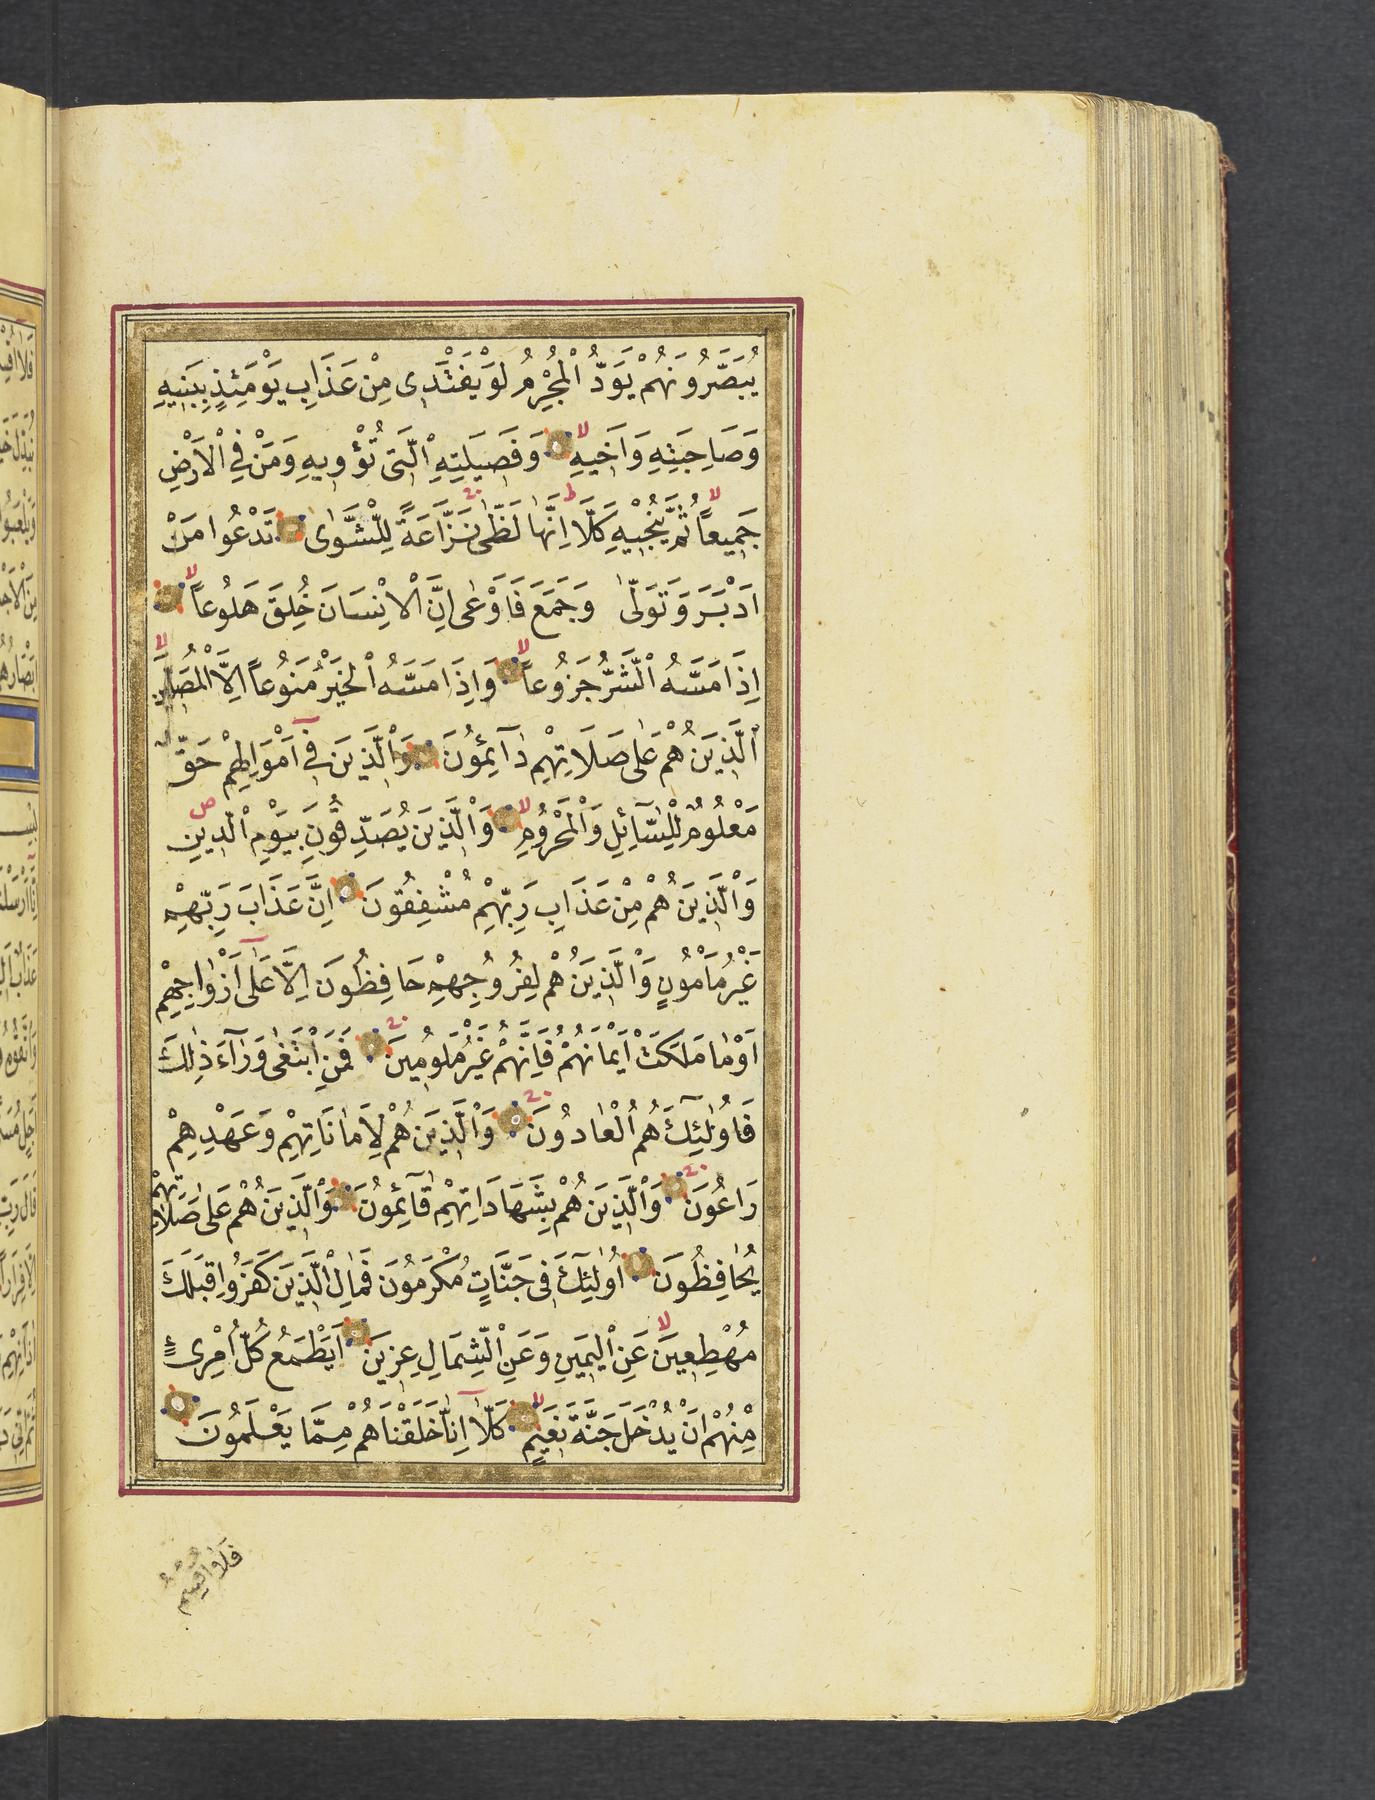 يُبَصَّرُونَهُمْ يَوَدُّ الْمُجْرِمُ لَوْ يَفْتَدِى مِنْ عَذَابِ يَوْمَئِذٍ بِبَنِيهِ
وَصَاحِبَتِهِ وَاَخِيهِ لا وَفَصِيلَتِهِ الَّتِى تُؤْوِيهِ وَمَنْ فِى الْاَرْضِ
جَمِيعاً لا ثُمَّ يُنْجِيهِ كَلَّا ط اِنَّهَا لَظٰى نَزَّاعَةً لِلشَّوٰى تَدْعُوا مَنْ
اَدْبَرَ وَتَوَلّٰى وَجَمَعَ فَاَوْعٰى اِنَّ الْاِنْسَانَ خُلِقَ هَلُوعاً لا
اِذَا مَسَّهُ الشَّرُّ جَزُوعاً لا وَاِذَا مَسَّهُ الْخَيْرُ مَنُوعاً اِلَّا الْمُصَلِّينَ لا
الَّذِينَ هُمْ عَلٰى صَلَاتِهِمْ دٰآئِمُونَ وَالَّذِينَ فِىٓ اَمْوَالِهِمْ حَقٌّ
مَعْلُومٌ لِلسَّآئِلِ وَالْمَحْرُومِ لا وَالَّذِينَ يُصَدِّقُونَ بِيَوْمِ الدِّينِ ص
وَالَّذِينَ هُمْ مِنْ عَذَابِ رَبِّهِمْ مُشْفِقُونَ اِنَّ عَذَابَ رَبِّهِمْ
غَيْرُ مَأْمُونٍ وَالَّذِينَ هُمْ لِفُرُوجِهِمْ حَافِظُونَ اِلَّا عَلٰىٓ اَزْوَاجِهِمْ
اَوْمَا مَلَكَتْ اَيْمَانُهُمْ فَاِنَّهُمْ غَيْرُ مَلُومِينَ فَمَنِ ابْتَغٰى وَرَآءَ ذٰلِكَ
فَاُولٰٓئِكَ هُمُ الْعَادُونَ وَالَّذِينَ هُمْ لِاَمَانَاتِهِمْ وَعَهْدِهِمْ
رَاعُونَ وَالَّذِينَ هُمْ بِشَهَادَاتِهِمْ قَآئِمُونَ وَالَّذِينَ هُمْ عَلٰى صَلَاتِهِمْ
يُحَافِظُونَ اُولٰٓئِكَ فِى جَنَّاتٍ مُكْرَمُونَ فَمَالِ الَّذِينَ كَفَرُوا قِبَلَكَ
مُهْطِعِينَ لا عَنِ الْيَمِينِ وَعَنِ الشِّمَالِ عِزِينَ اَيَطْمَعُ كُلُّ امْرِىءٍ
مِنْهُمْ اَنْ يُدْخَلَ جَنَّةَ نَعِيمٍ لا كَلَّا اِنَّا خَلَقْنَاهُمْ مِمَّا يَعْلَمُونَ
فَلَا اُقْسِمُ